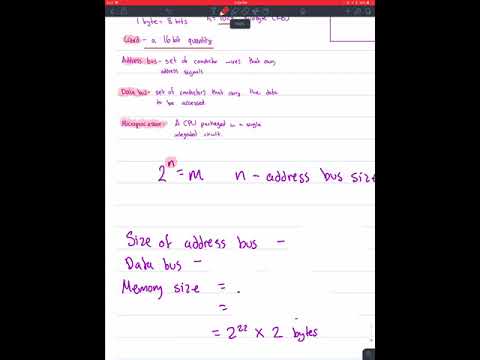 1 byte = 8 bits
Word - a 16 bit quantity
Address bus - set of conductor wires that carry
address signals
Data bus - set of conductors that carry the data
to be accessed
Microprocessor - A CPU packaged in a single
integrated circuit.
2^n = m n - address bus size
Size of address bus -
Data bus -
Memory size =
=
= 2^22 x 2 bytes